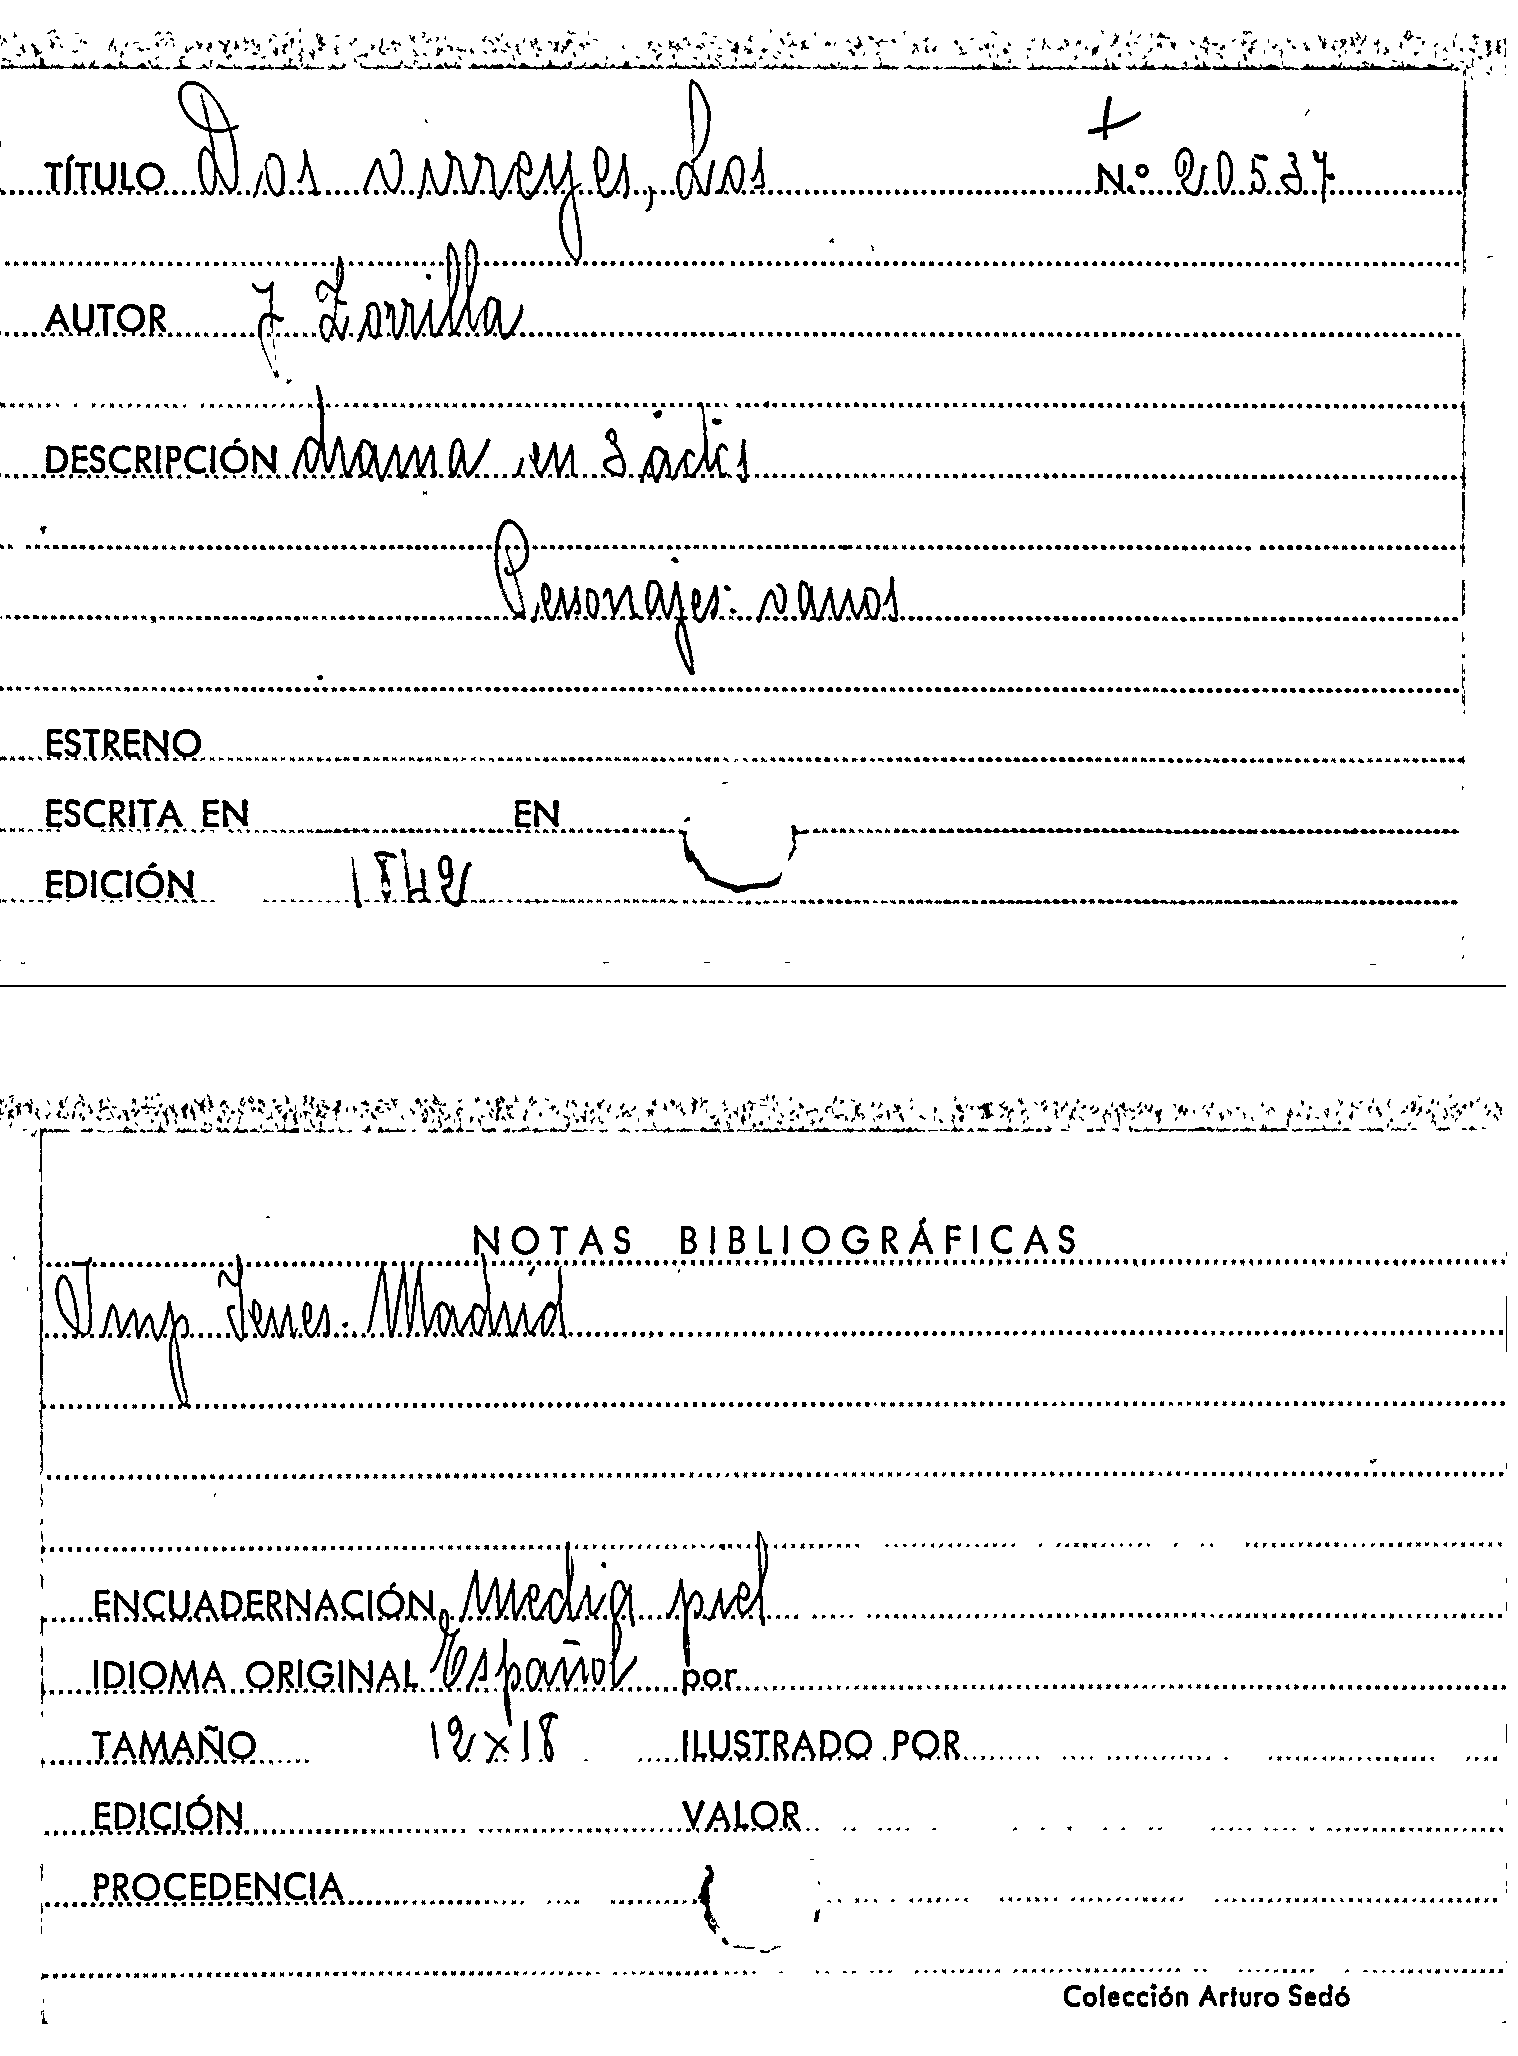 +
TÍTULO Dos virreyes, Los N.º 20537
AUTOR J Zorrilla
DESCRIPCIÓN drama en 3 actos
Personajes: varios
ESTRENO
ESCRITA EN EN
EDICIÓN 1842
NOTAS BIBLIOGRÁFICAS
Imp Yenes. Madrid
ENCUADERNACIÓN media piel
IDIOMA ORIGINAL Español por
TAMAÑO 12x18 ILUSTRADO POR
EDICIÓN VALOR
PROCEDENCIA
Colección Arturo Sedó